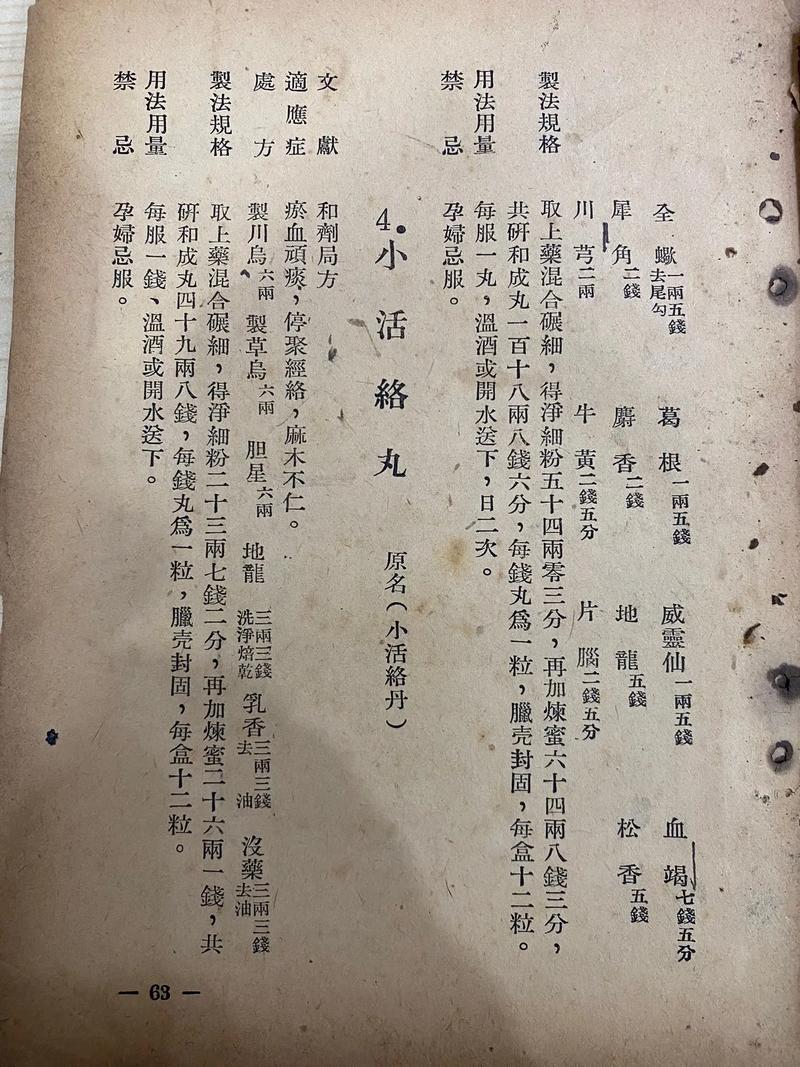 全蠍一兩五錢去尾勾 葛根一兩五錢 威靈仙一兩五錢 血竭七錢五分
犀角二錢 麝香二錢 地龍五錢 松香五錢
川芎二兩 牛黃二錢五分 片腦二錢五分
製法規格 取上藥混合碾細，得淨細粉五十四兩零三分，再加煉蜜六十四兩八錢三分，
共硏和成丸一百十八兩八錢六分，每錢丸爲一粒，臘壳封固，每盒十二粒。
用法用量 每服一丸，溫酒或開水送下，日二次。
禁忌 孕婦忌服。
4.小活絡丸 原名（小活絡丹）
文獻 和劑局方
適應症 瘀血頑痰，停聚經絡，麻木不仁。
處方 製川烏六兩 製草烏六兩 胆星六兩 地龍三兩三錢洗淨焙乾 乳香三兩三錢去油 沒藥三兩三錢去油
製法規格 取上藥混合碾細，得淨細粉二十三兩七錢二分，再加煉蜜二十六兩一錢，共
硏和成丸四十九兩八錢，每錢丸爲一粒，臘壳封固，每盒十二粒。
用法用量 每服一錢、溫酒或開水送下。
禁忌 孕婦忌服。
— 63 —